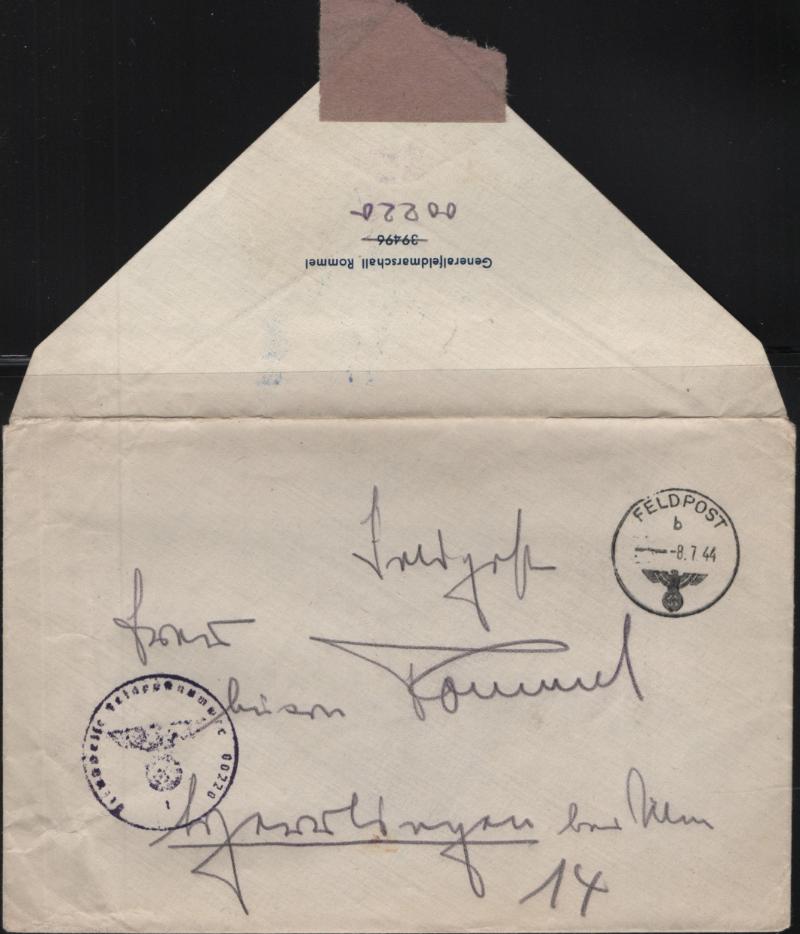 00220
39496
Generalfeldmarschall Rommel
FELDPOST
b
-8.7.44
Feldpost
Frau
Lucie Rommel
Dienststelle Feldpostnummer 00220
1
Herrlingen bei Ulm
14